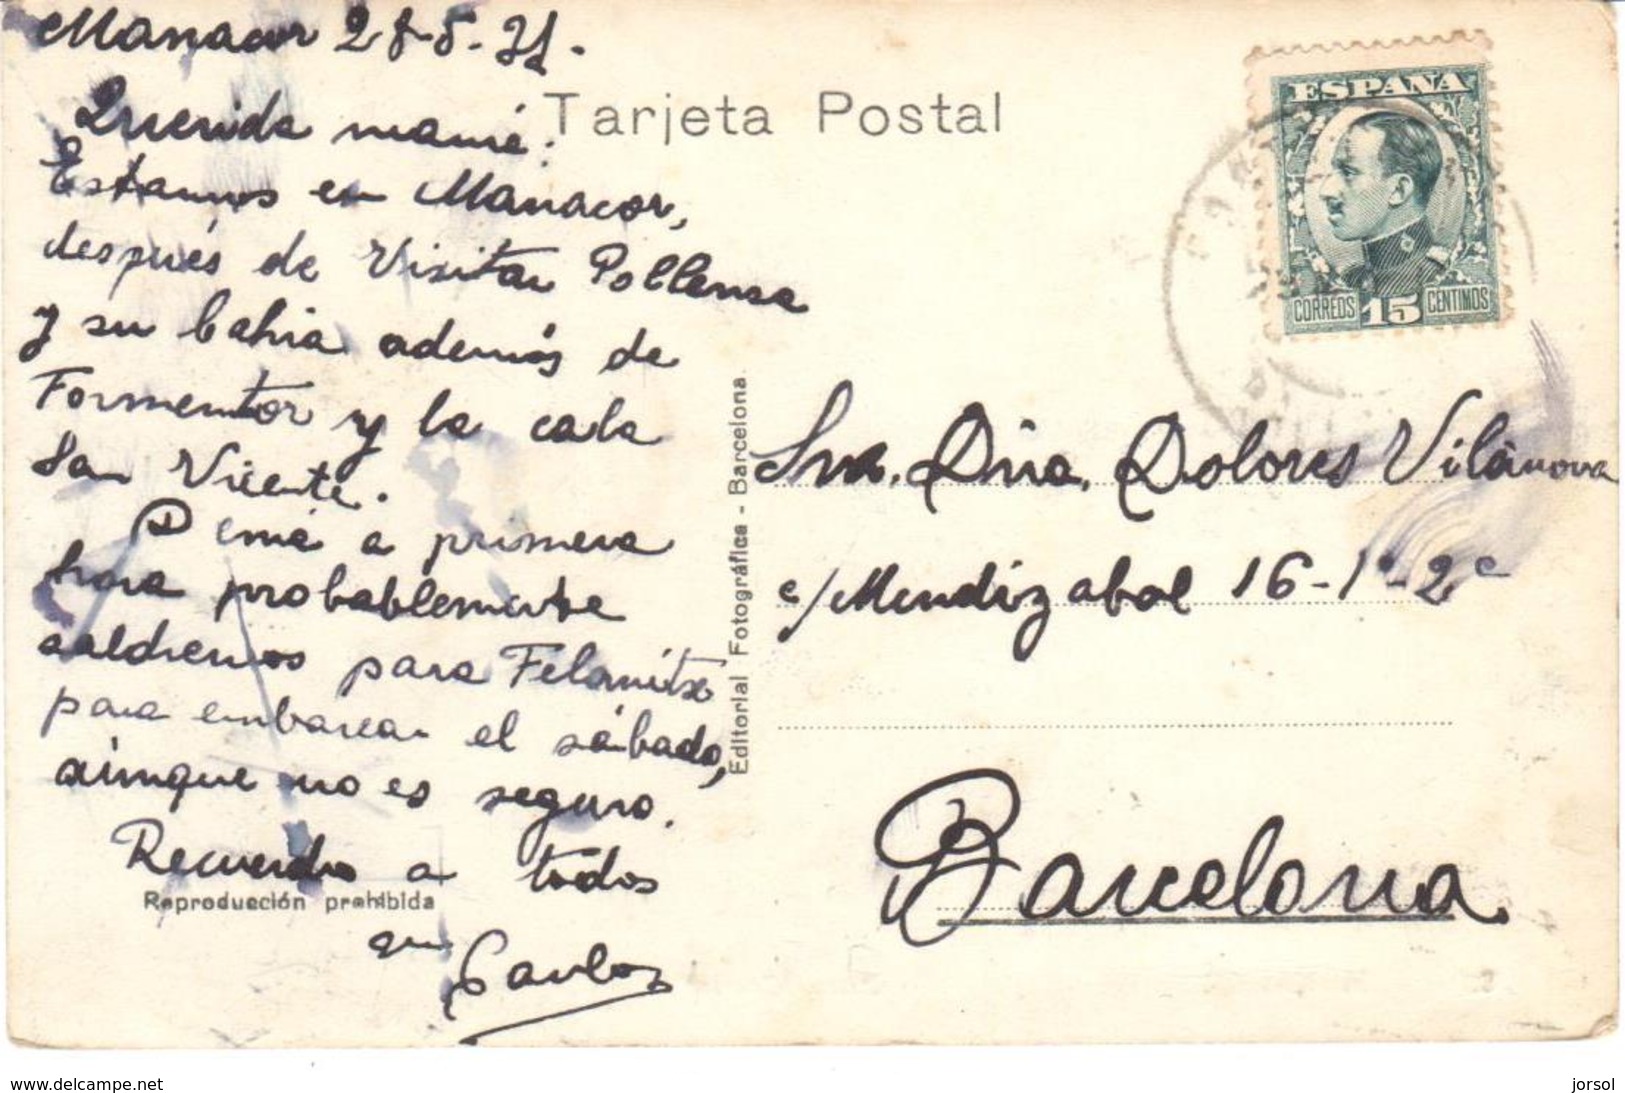 Manacor 28-5-31.
Tarjeta Postal
Querida mamá:
Estamos en Manacor,
después de Visitar Pollensa
y su bahia además de
Formentor y la cala
San Vicente.
a primera
hora probablemente
saldremos para Felanitx
para embarcar el sábado,
aunque no es seguro.
Recuerdos a todos
Reproducción prohibida
Carlos
Editorial Fotográfica - Barcelona
ESPAÑA
CORREOS 15 CENTIMOS
Sra. Dña. Dolores Vilanova
c/Mendizabal 16-1º-2ª
Barcelona
www.delcampe.net
jorsol